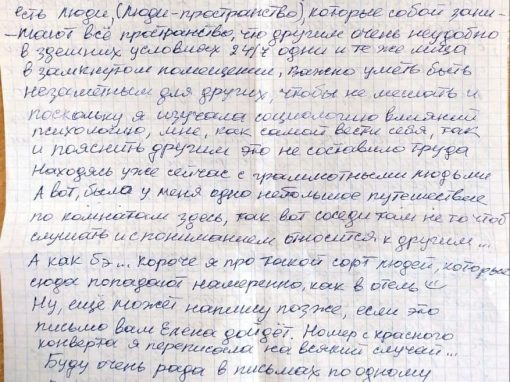 есть люди, (люди-пространство), которые собой зани-
-мают всё пространство, что другим очень неудобно
в здешних условиях 24/7 одни и те же лица
в замкнутом помещении, важно уметь быть
незаметным для других, чтобы не мешать и
поскольку я изучала социологию влияний
психологию, мне, как самой вести себя, так
и пояснить другим это не составило труда
Находясь уже сейчас с грамотными людьми
А вот, была у меня одно небольшое путешествие
по комнатам здесь, так вот соседи там не то чтоб
слушать и с пониманием относится к другим...
А как бэ... короче я про такой сорт людей, которые
сюда попадают намеренно, как в отель
Ну, ещё может напишу позже, если это
письмо вам Елена дойдёт. Номер с красного
конверта я переписала на всякий случай...
Буду очень рада в письмах по одному